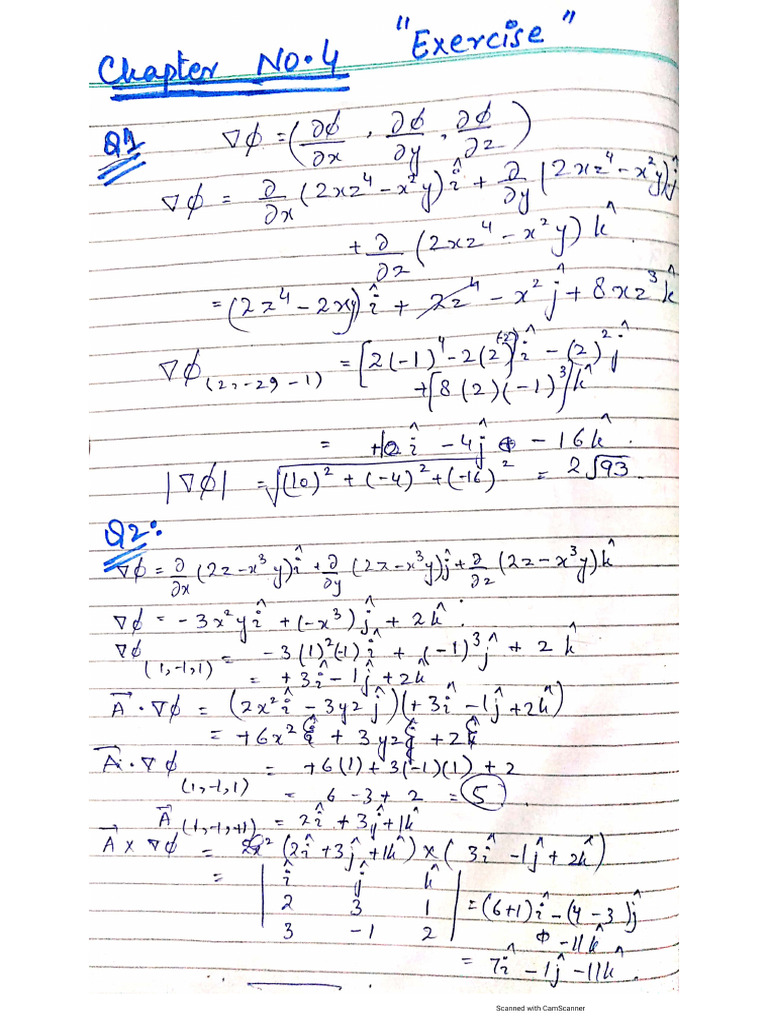 Chapter No.4 "Exercise"
Q1 ∇ϕ = (∂ϕ/∂x , ∂ϕ/∂y , ∂ϕ/∂z)
∇ϕ = ∂/∂x (2xz⁴ − x²y) î + ∂/∂y (2xz⁴ − x²y) ĵ
+ ∂/∂z (2xz⁴ − x²y) k̂.
= (2z⁴ − 2xy) î + 2z⁴ − x² ĵ + 8xz³ k̂
∇ϕ (2, −2, −1) = [2(−1)⁴ − 2(2)(−2)] î − (2)² ĵ
+ [8(2)(−1)³] k̂
= +10 î − 4ĵ − 16 k̂.
|∇ϕ| = √(10)² + (−4)² + (−16)² = 2√93.
Q2:
∇ϕ = ∂/∂x (2z − x³y) î + ∂/∂y (2z − x³y) ĵ + ∂/∂z (2z − x³y) k̂
∇ϕ = −3x²y î + (−x³) ĵ + 2k̂.
∇ϕ (1,−1,1) = −3(1)²(−1) î + (−1)³ ĵ + 2 k̂
= +3î − 1ĵ + 2k̂
A⃗ · ∇ϕ = (2x² î − 3yz ĵ)(+3î − 1ĵ + 2k̂)
= +6x² + 3yz + 2
A⃗ · ∇ϕ (1,−1,1) = +6(1) + 3(−1)(1) + 2
= 6 − 3 + 2 = 5
A⃗ (1,−1,+1) = 2î + 3ĵ + 1k̂
A⃗ × ∇ϕ = (2î + 3ĵ + 1k̂) × (3î − 1ĵ + 2k̂)
= | î ĵ k̂ |
2 3 1 = (6+1) î − (4−3) ĵ
3 −1 2 −11k̂
= 7î − 1ĵ − 11k̂.
Scanned with CamScanner